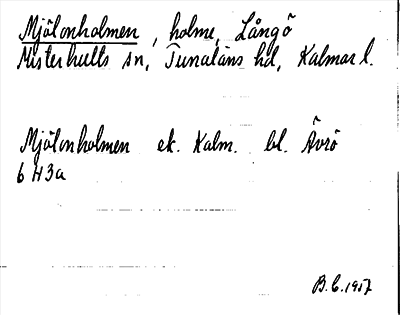 Mjölonholmen, holme, Långö
Misterhults sn, Tunaläns hd, Kalmar l.
Mjölonholmen ek. Kalm. bl. Ävrö
6 H3a
B.C. 1957